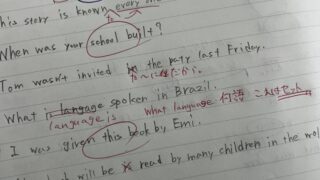 his story is known every one
When was your school built?
Tom wasn't invited the paty last Friday.
What is langage spoken in Brazil.
language is what language 何語 これはセット
I was given this book by Emi.
will be read by many children in the